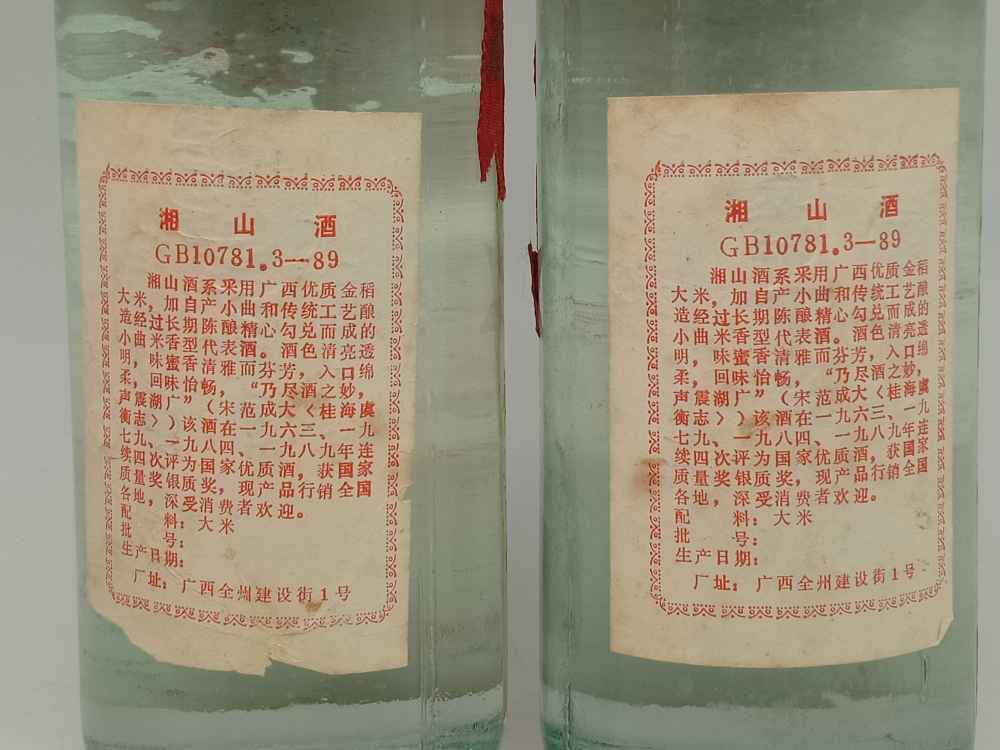 湘山酒
GB10781.3—89
湘山酒系采用广西优质金稻
大米，加自产小曲和传统工艺酿
造经过长期陈酿精心勾兑而成的
小曲米香型代表酒。酒色清亮透
明，味蜜香清雅而芬芳，入口绵
柔，回味怡畅，“乃尽酒之妙，
声震湖广”（宋范成大〈桂海虞
衡志〉）该酒在一九六三、一九
七九、一九八四、一九八九年连
续四次评为国家优质酒，获国家
质量奖银质奖，现产品行销全国
各地，深受消费者欢迎。
配　料：大米
批　号：
生产日期：
厂址：广西全州建设街1号
湘山酒
GB10781.3—89
湘山酒系采用广西优质金稻
大米，加自产小曲和传统工艺酿
造经过长期陈酿精心勾兑而成的
小曲米香型代表酒。酒色清亮透
明，味蜜香清雅而芬芳，入口绵
柔，回味怡畅，“乃尽酒之妙，
声震湖广”（宋范成大〈桂海虞
衡志〉）该酒在一九六三、一九
七九、一九八四、一九八九年连
续四次评为国家优质酒，获国家
质量奖银质奖，现产品行销全国
各地，深受消费者欢迎。
配　料：大米
批　号：
生产日期：
厂址：广西全州建设街1号